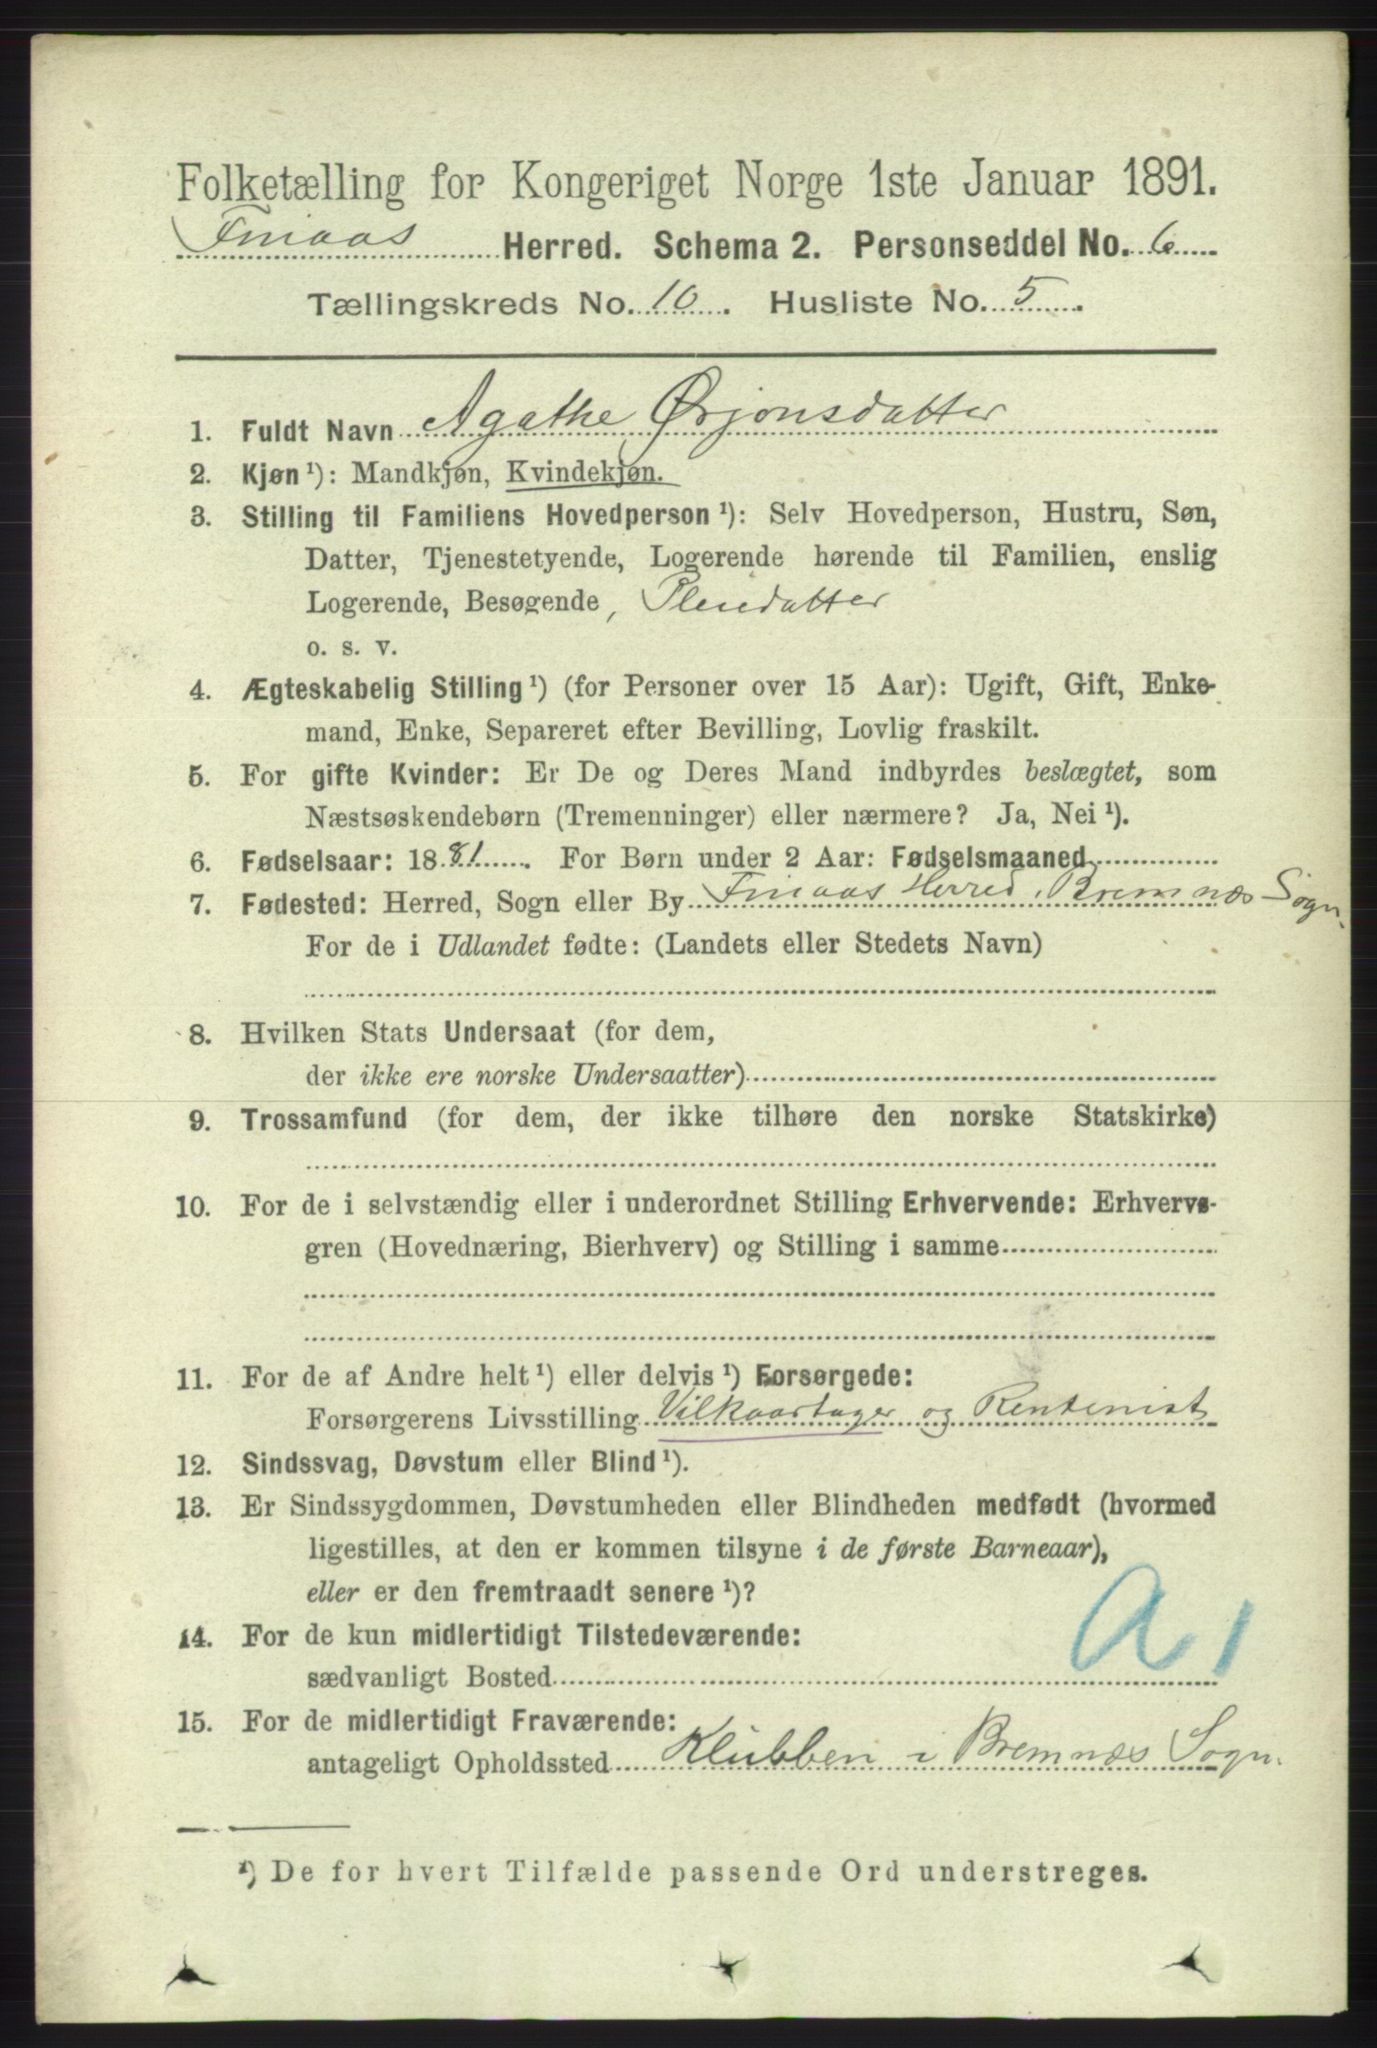 Folketælling for Kongeriget Norge 1ste Januar 1891.
Finaas Herred. Schema 2. Personseddel No. 6
Tællingskreds No. 10. Husliste No. 5.
1. Fuldt Navn Agathe Ørjonsdatter
2. Kjøn ¹): Mandkjøn, Kvindekjøn.
3. Stilling til Familiens Hovedperson ¹): Selv Hovedperson, Hustru, Søn,
Datter, Tjenestetyende, Logerende hørende til Familien, enslig
Logerende, Besøgende, Pleiedatter
o. s. v.
4. Ægteskabelig Stilling ¹) (for Personer over 15 Aar): Ugift, Gift, Enke-
mand, Enke, Separeret efter Bevilling, Lovlig fraskilt.
5. For gifte Kvinder: Er De og Deres Mand indbyrdes beslægtet, som
Næstsøskendebørn (Tremenninger) eller nærmere? Ja, Nei ¹).
6. Fødselsaar: 1881. For Børn under 2 Aar: Fødselsmaaned
7. Fødested: Herred, Sogn eller By Finaas Herred, Bremnæs Sogn.
For de i Udlandet fødte: (Landets eller Stedets Navn)
8. Hvilken Stats Undersaat (for dem,
der ikke ere norske Undersaatter)
9. Trossamfund (for dem, der ikke tilhøre den norske Statskirke)
10. For de i selvstændig eller i underordnet Stilling Erhvervende: Erhvervs-
gren (Hovednæring, Bierhverv) og Stilling i samme
11. For de af Andre helt ¹) eller delvis ¹) Forsørgede:
Forsørgerens Livsstilling Vilkaartager og Rentenist
12. Sindssvag, Døvstum eller Blind ¹).
13. Er Sindssygdommen, Døvstumheden eller Blindheden medfødt (hvormed
ligestilles, at den er kommen tilsyne i de første Barneaar),
eller er den fremtraadt senere ¹)?
14. For de kun midlertidigt Tilstedeværende:
sædvanligt Bosted
A 1
15. For de midlertidigt Fraværende:
antageligt Opholdssted Klubben i Bremnæs Sogn.
¹) De for hvert Tilfælde passende Ord understreges.